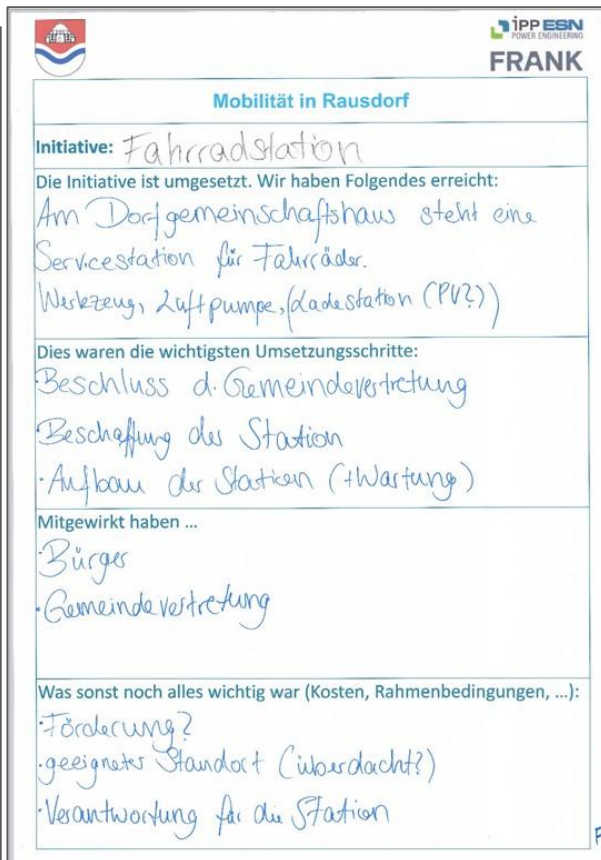 iPP ESN
POWER ENGINEERING
FRANK
Mobilität in Rausdorf
Initiative: Fahrradstation
Die Initiative ist umgesetzt. Wir haben Folgendes erreicht:
Am Dorfgemeinschaftshaus steht eine
Servicestation für Fahrräder.
Werkzeug, Luftpumpe, (Ladestation (PV?))
Dies waren die wichtigsten Umsetzungsschritte:
·Beschluss d. Gemeindevertretung
·Beschaffung der Station
·Aufbau der Station (+Wartung)
Mitgewirkt haben ...
·Bürger
·Gemeindevertretung
Was sonst noch alles wichtig war (Kosten, Rahmenbedingungen, ...):
·Förderung?
·geeigneter Standort (überdacht?)
·Verantwortung für die Station